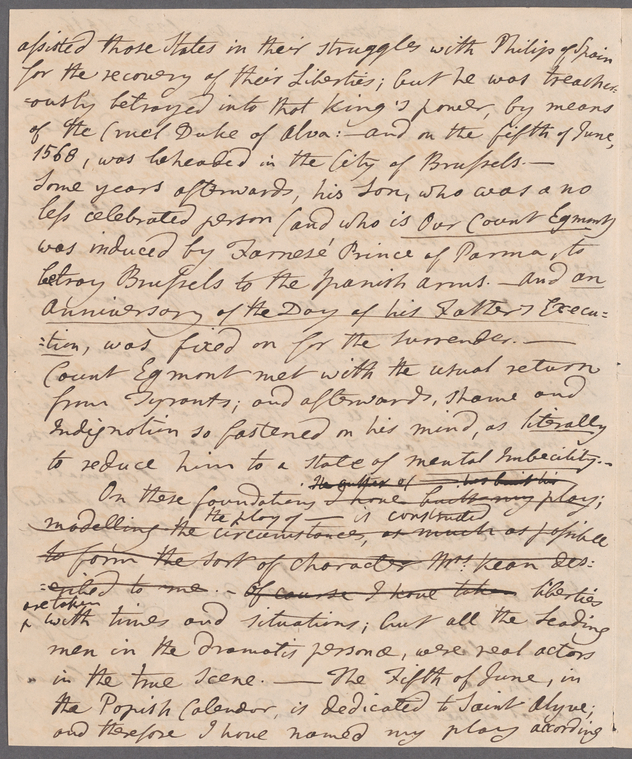 assisted those States in their struggles with Philip of Spain
for the recovery of their Liberties; but he was treacher-
=ously betrayed into that King's power, by means
of the Cruel Duke of Alva: — and on the fifth of June,
1568, was beheaded in the City of Brussels. —
Some years afterwards, his Son, who was a no
less celebrated person (and who is Our Count Egmont)
was induced by Farnesé Prince of Parma, to
betray Brussels to the Spanish arms. — and an
Anniversary of the Day of his Father's Execu=
=tion, was fixed on for the surrender. —
Count Egmont met with the usual return
from Tyrants; and afterwards, shame and
Indignation so fastened on his mind, as literally
to reduce him to a state of mental Imbecility. -
The author of has built his
On these foundations I have built my play;
the play of — is constructed
modelling the circumstance, as much as possible
to form the sort of character Mrs. Kean des-
=cribed to me. - Of course I have taken liberties
are taken
with times and situations; but all the Leading
men in the dramatis personæ, were real actors
in the true Scene. — The Fifth of June, in
the Popish Calendar, is dedicated to Saint Alyve;
and therefore I have named my play according